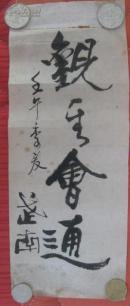 觀其會通
壬午季夏